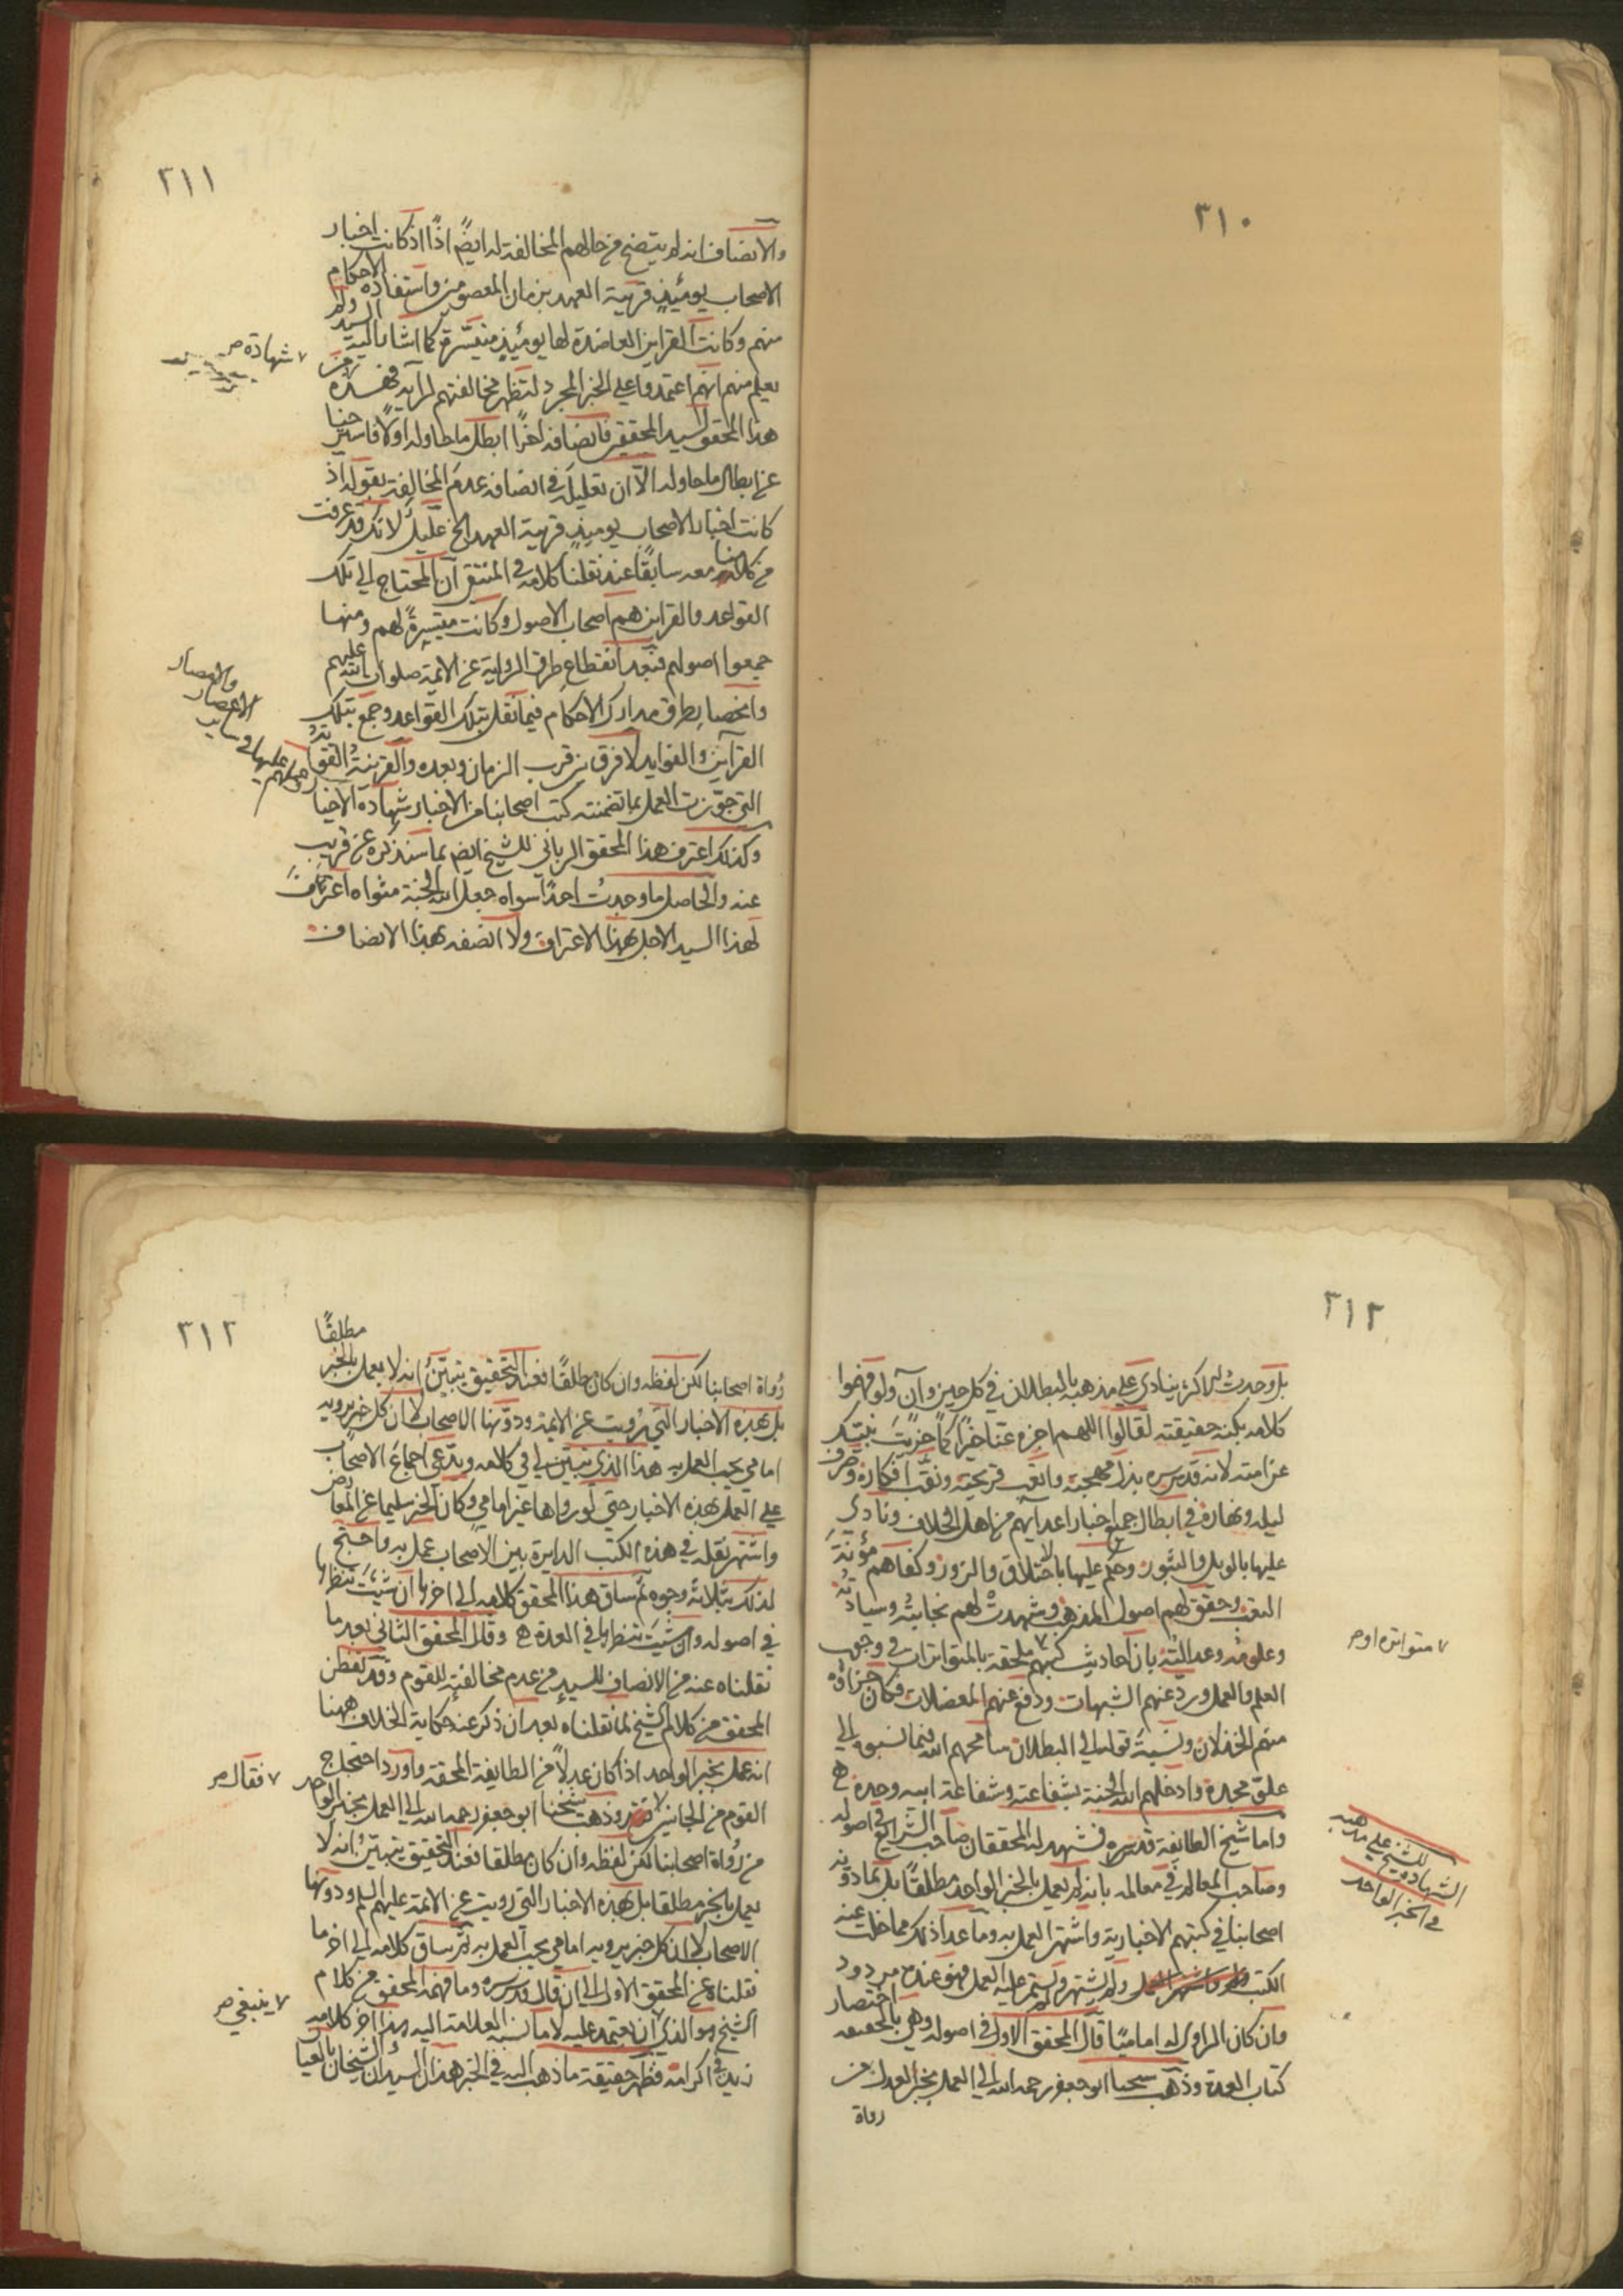 ٣١٠
٣١١
والانصاف انه لم يتضح من حالهم المخالفة له ايضً اذًا اذ كانت اخبار
الاصحاب يومئذٍ قريبة العهد بزمان المعصومين واستفادة الاحكام
منهم وكانت القراين العاضدة لها يومئذٍ متيسّرة كما اشار اليه السيد ولم
يعلم منهم انهم اعتمدوا على الخبر المجرد لتظهر مخالفتهم لرايه فهذه من
هذا المحقق للسيد المحقق فانصافه اخرًا ابطل ما حاوله اولًا فاستر حنا
عن ابطال ما حاوله الّا ان تعليلَه في انصافه عدمَ المخالفة بقوله اذ
كانت اخبار الاصحاب يوميذٍ قريبة العهد الخ عليلٌ لانك قد عرفت
من كلامنا معه سابقًا عند نقلنا كلامه في المنتقى ان المحتاج الى تلك
القواعد والقراين هم اصحاب الاصول وكانت متيسرةً لهم ومنها
جمعوا اصولهم فبعد انقطاع طرق الرواية عن الائمة صلوات الله عليهم
وانحصار طرق مدارك الاحكام فيما نقل بتلك القواعد وجمع بتلك
القرآين والفوايد لا فرق بين قرب الزمان وبعده والقرينةُ القويةُ
التي جوّزت العمل بما تضمنته كتب اصحابنا من الاخبار شهادة الاخيا
وكذلك اعترف هذا المحقق الرباني للشيخ ايضً بما سنذكره عن قريب
عنه والحاصل ما وجدتُ احدًا سواه جعل الله الجنة مثواه اعترفَ
لهذا السيد الاجل بهذا الاعتراف ولا انصفه بهذا الانصاف
٧ شهادة صر
والامصار
الاعصار
عليها في ساير
٣١٢
بل وجدتُ الاكثر ينادي على مذهبه بالبطلان في كل حين وآن ولو فهموا
كلامه بكنه حقيقته لقالوا اللهم اجزه عنا خيرًا كما جزيتَ نبيّك
عن امته لانه قدس سره بذل مهجته واتعب قريحته ونقّب افكاره وصرف
ليله ونهاره في ابطال جميع اخبار اعدائهم من اهل الخلاف ونادى
عليها بالويل والثبور وحكم عليها بالاختلاق والزور وكفاهم مؤنةَ
التعب وحقق لهم اصول المذهب وشهدتْ لهم نجابتُه وسيادتُه
وعلومُه وعدالتُه بان احاديث كتبهم ٧ ملحقة بالمتواترات في وجوب
العلم والعمل ورد عنهم الشبهات ودفع عنهم المعضلات فكان جزاؤه
منهم الخذلان ونسبةَ قوله الى البطلان سامحهم الله فيما نسبوه الى
علوّ مجده وادخلهم الله الجنة بشفاعته وشفاعة ابيه وجده ع
واما شيخ الطايفة قدس سره فشهد له المحققان صاحب الشرايع في اصوله
وصاحب المعالم في معالمه بانه لم يعمل بالخبر الواحد مطلقًا بل بما دوّنه
اصحابنا في كتبهم الاخبارية واشتهر العمل به وما عدا ذلك مما خلت عنه
الكتب ولم يشتهر ولم يستمر عليه العمل فهو عنده مردود
وان كان الراوي له اماميًا قال المحقق الاول في اصوله وهي بالحقيقة اختصار
كتاب العدة وذهب شيخنا ابو جعفر رحمه الله الى العمل بخبر العدل من
رواة
٧ متواترة او صر
الشهادة للشيخ على مذهبه
في الخبر الواحد
٣١٣
رُواة اصحابنا لكن لفظه وان كان مطلقًا فعند التحقيق يتبيّنُ انه لا يعمل بالخبر مطلقًا
بل بهذه الاخبار التي رُويت عن الائمة ودوّنها الاصحاب لا ان كل خبر يرويه
امامي يجب العمل به هذا الذي تبيّن لي في كلامه ويدّعي اجماعُ الاصحاب
على العمل بهذه الاخبار حتى لو رواها غير امامي وكان الخبر سليما عن المعارض
واشتهر نقله في هذه الكتب الدايرة بين الاصحاب عمل به واحتج
لذلك بثلاثة وجوه ثم ساق هذا المحقق كلامه الى اخرها ان شئتَ تنظرها
في اصوله وان شئتَ تنظرها في العدة ع وقال المحقق الثاني بعد ما
نقلناه عنه من الانصاف للسيدِ من عدم مخالفته للقوم وقد تفطن
المحقق من كلام الشيخ لما نقلناه بعد ان ذكر عنه حكاية الخلاف ههنا
انه عمل بخبر الواحد اذا كان عدلًا من الطايفة المحقة واورد احتجاج
القوم من الجانبين ٧ وذهب شيخنا ابو جعفر رحمه الله الى العمل بخبر الواحد
من رُواة اصحابنا لكن لفظه وان كان مطلقا فعند التحقيق يتبيّنُ انه لا
يعمل بالخبر مطلقا بل بهذه الاخبار التي رويت عن الائمة عليهم السلم ودونها
الاصحاب لا ان كل خبر يرويه امامي يجب العمل به ثم ساق كلامه الى اخر ما
نقلناه عن المحقق الاول الى ان قال قدس سره وما فهمه المحقق من كلام
الشيخ هو الذي ٧ ان يعتمد عليه لا ما نسبه العلامة اليه هذا اخر كلامه
زيد في اكرامه فظهر حقيقة ما ذهب اليه في الخبر هذان السيدان الشيخان بالعيا
٧ فقال صر
٧ ينبغي صر